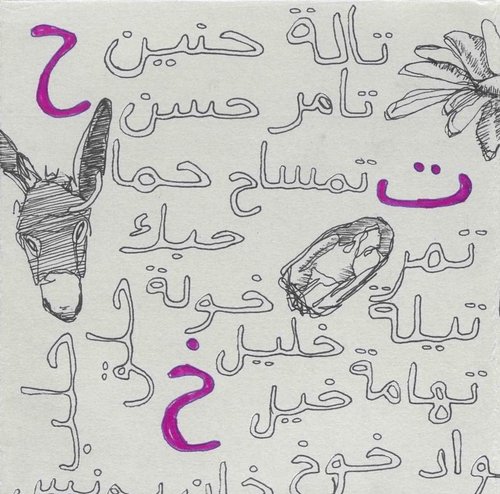 تالة حنين ح
تامر حسن
ت تمساح حما
حبك
تمر
خولة
تيلة
خليل
خ
تهامة خيل
واد خوخ خان يونس